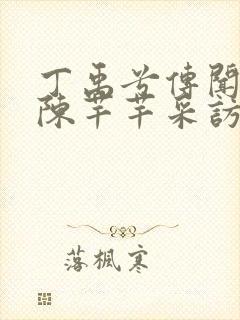 丁禹兮傳聞
陳芊芊采訪
落楓寒